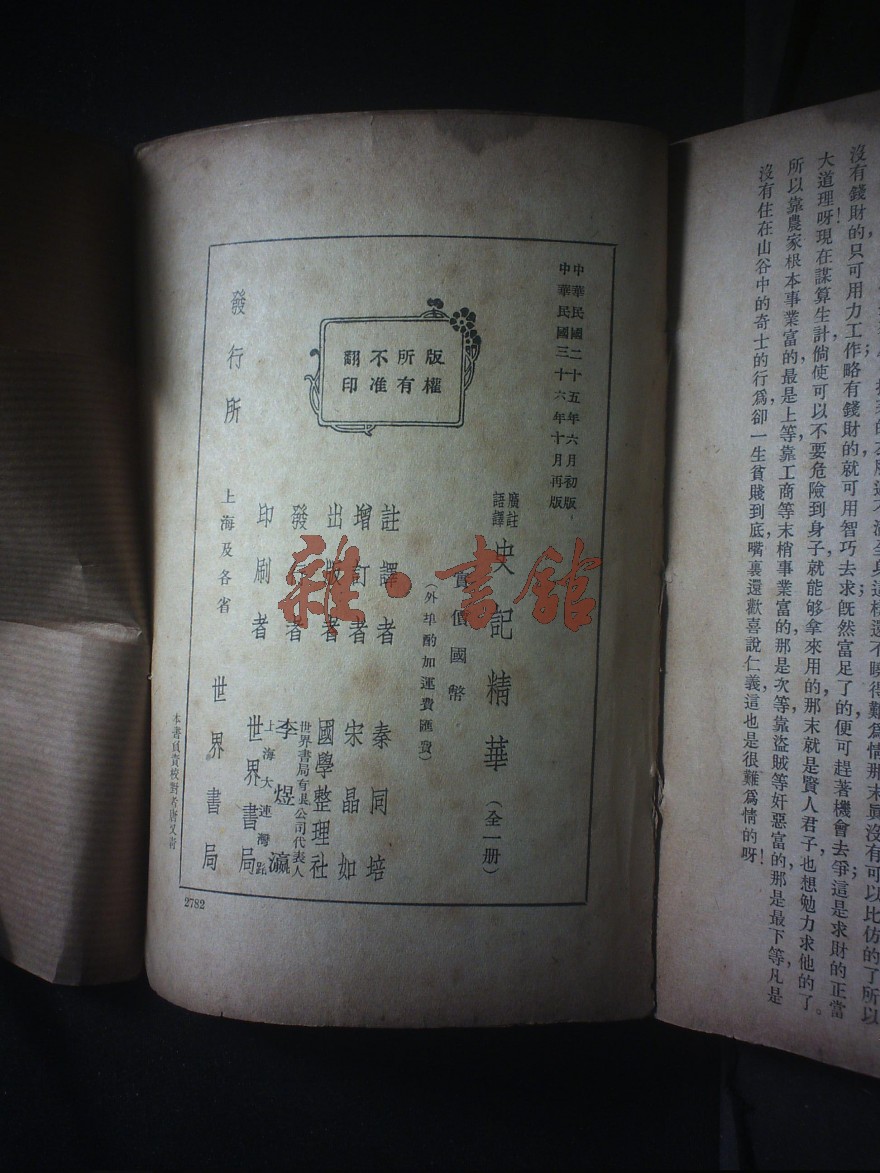 沒有錢財的只可用力工作略有錢財的就可用智巧去求既然富足了的便可趕著機會去爭這是求財的正當
大道理呀!現在謀算生計,倘使可以不要危險到身子就能够拿來用的,那末就是賢人君子也想勉力求他的了。
所以靠農家根本事業富的,最是上等,靠工商等末梢事業富的,那是次等,靠盜賊等奸惡富的,那是最下等,凡是
沒有住在山谷中的奇士的行爲,卻一生貧賤到底,嘴裏還歡喜說仁義,這也是很難爲情的呀!
中華民國二十五年六月初版
中華民國三十六年十月再版
版權所有不准翻印
廣註語譯 史記精華(全一册)
實價國幣
(外埠酌加運費匯費)
註譯者 秦同培
增訂者 宋晶如
出版者 國學整理社
發行者 世界書局有限公司代表人 李煜瀛
印刷者 上海大連灣路 世界書局
發行所 上海及各省 世界書局
本書負責校對者唐又青
2782
雜·書館